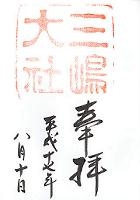 三嶋
大社
奉拝
平成十七年
八月十日